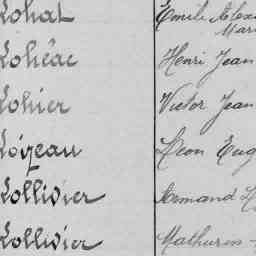 Lohat Emile Alex
Mari
Lohéac Henri Jean
Lohier Victor Jean
Loizeau Léon Eug
Lollivier Armand
Lollivier Mathurin